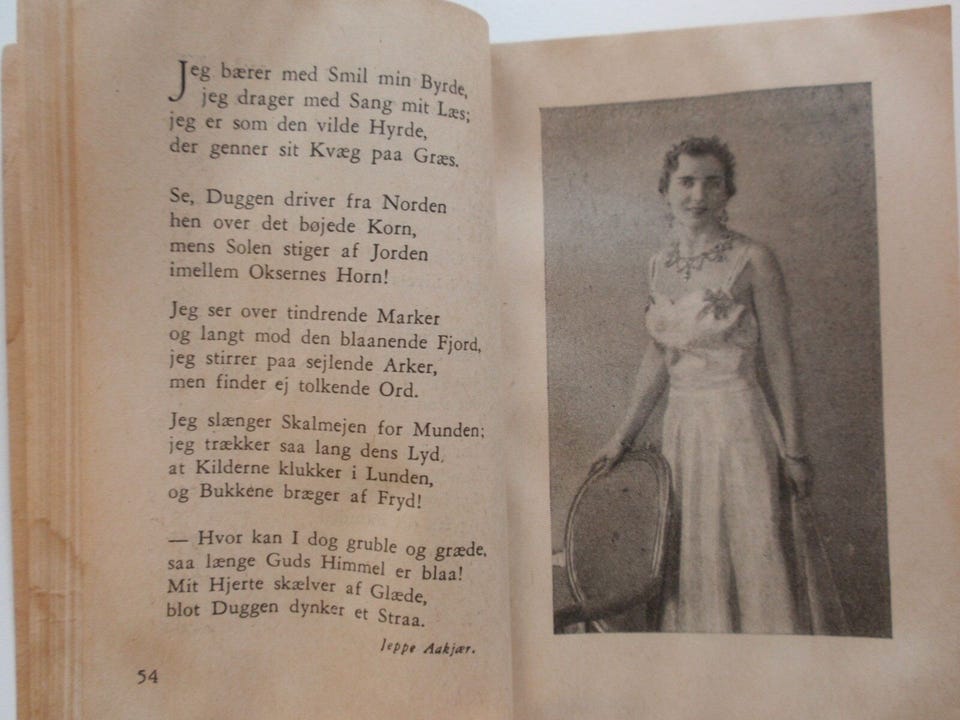 Jeg bærer med Smil min Byrde,
jeg drager med Sang mit Læs;
jeg er som den vilde Hyrde,
der genner sit Kvæg paa Græs.
Se, Duggen driver fra Norden
hen over det bøjede Korn,
mens Solen stiger af Jorden
imellem Oksernes Horn!
Jeg ser over tindrende Marker
og langt mod den blaanende Fjord,
jeg stirrer paa sejlende Arker,
men finder ej tolkende Ord.
Jeg slænger Skalmejen for Munden;
jeg trækker saa lang dens Lyd,
at Kilderne klukker i Lunden,
og Bukkene bræger af Fryd!
— Hvor kan I dog gruble og græde,
saa længe Guds Himmel er blaa!
Mit Hjerte skælver af Glæde,
blot Duggen dynker et Straa.
Jeppe Aakjær.
54